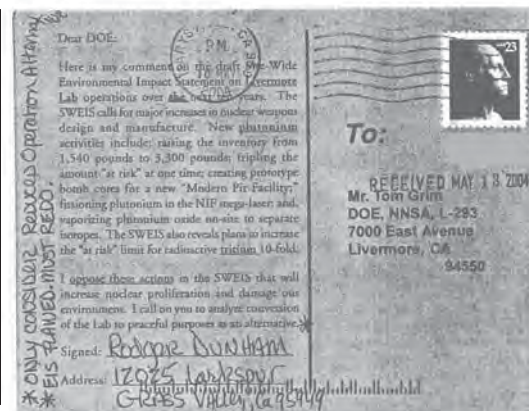 Dear DOE:
Here is my comment on the draft Site-Wide
Environmental Impact Statement on Livermore
Lab operations over the next ten years. The
SWEIS calls for major increases in nuclear weapons
design and manufacture. New plutonium
activities include: raising the inventory from
1,540 pounds to 3,300 pounds; tripling the
amount "at risk" at one time; creating prototype
bomb cores for a new "Modern Pit Facility;"
fissioning plutonium in the NIF mega-laser; and,
vaporizing plutonium oxide on-site to separate
isotopes. The SWEIS also reveals plans to increase
the "at risk" limit for radioactive tritium 10-fold.
I oppose these actions in the SWEIS that will
increase nuclear proliferation and damage our
environment. I call on you to analyze conversion
of the Lab to peaceful purposes as an alternative.*
Signed: Rodger DUNHAM
Address: 12985 Larkspur
GRASS VALLEY, Ca 95949
* ONLY CONSIDER Reduced Operation
* EIS FLAWED. MUST REDO.
PM
23
To:
RECEIVED MAY 13 2004
Mr. Tom Grim
DOE, NNSA, L-293
7000 East Avenue
Livermore, CA
94550